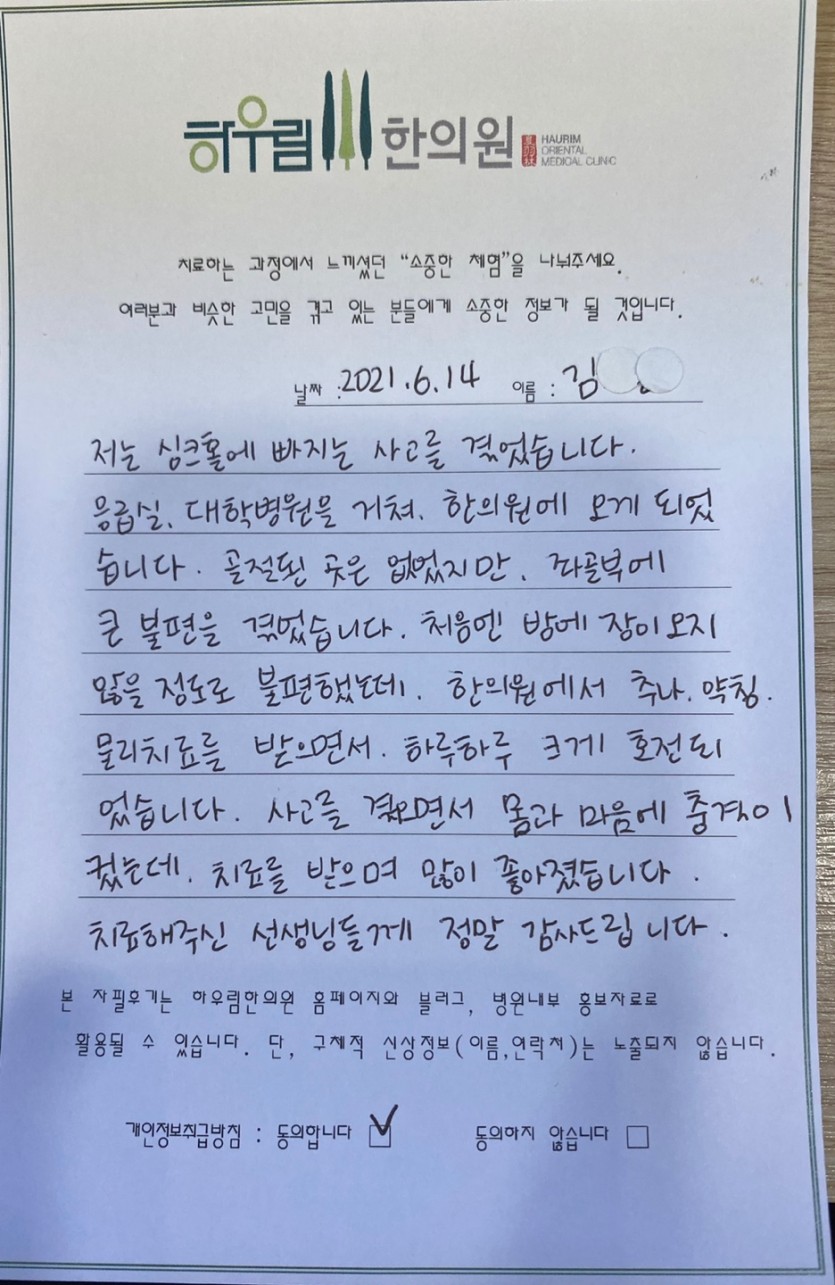 하우림 한의원 HAURIM
ORIENTAL
MEDICAL CLINIC
치료하는 과정에서 느끼셨던 “소중한 체험”을 나눠주세요.
여러분과 비슷한 고민을 겪고 있는 분들에게 소중한 정보가 될 것입니다.
날짜 : 2021.6.14 이름 : 김
저는 싱크홀에 빠지는 사고를 겪었습니다.
응급실, 대학병원을 거쳐, 한의원에 오게 되었
습니다. 골절된 곳은 없었지만, 좌골부에
큰 불편을 겪었습니다. 처음엔 밤에 잠이 오지
않을 정도로 불편했는데, 한의원에서 추나, 약침,
물리치료를 받으면서, 하루하루 크게 호전되
었습니다. 사고를 겪으면서 몸과 마음에 충격이
컸는데, 치료를 받으며 많이 좋아졌습니다.
치료해주신 선생님들께 정말 감사드립니다.
본 자필후기는 하우림한의원 홈페이지와 블러그, 병원내부 홍보자료로
활용될 수 있습니다. 단, 구체적 신상정보(이름,연락처)는 노출되지 않습니다.
개인정보취급방침 : 동의합니다 동의하지 않습니다